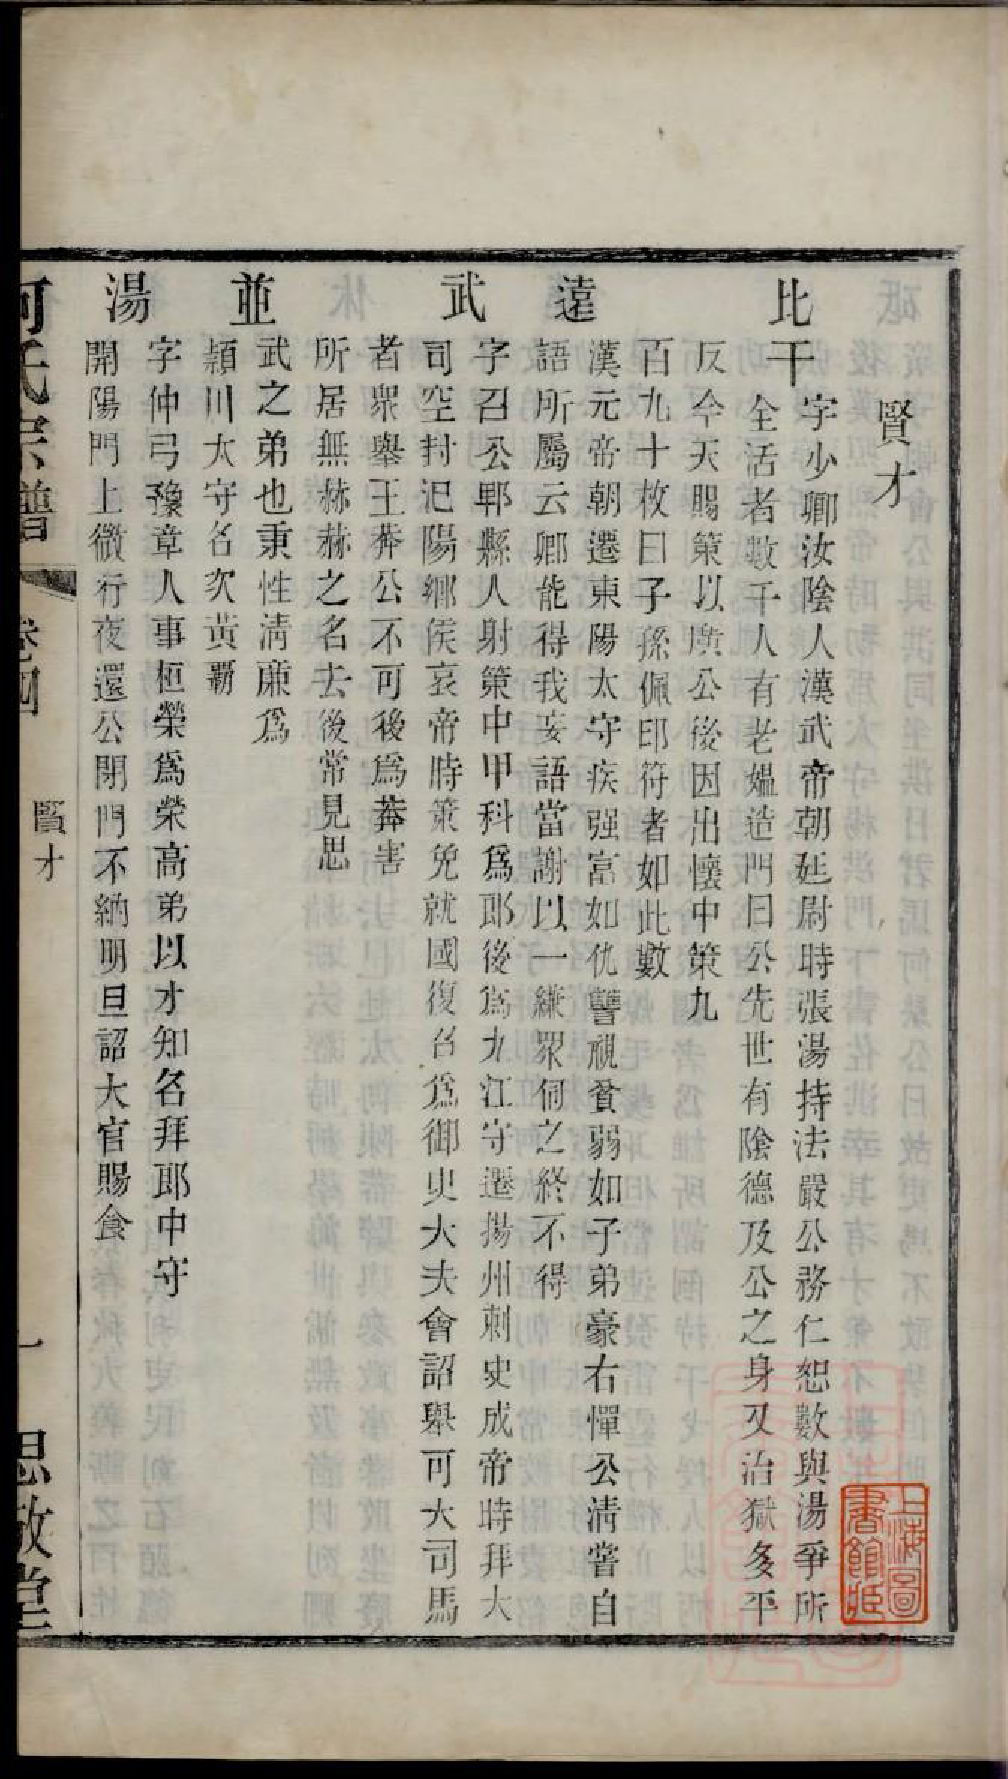 賢才
比干 字少卿汝陰人漢武帝朝廷尉時張湯持法嚴公務仁恕數與湯爭所
全活者數千人有老媼造門曰公先世有陰德及公之身又治獄多平
反今天賜策以廣公後因出懷中策九
百九十枚曰子孫佩印符者如此數
遠 漢元帝朝遷東陽太守疾强富如仇讐視貧弱如子弟豪右憚公清嘗自
語所屬云卿能得我妄語當謝以一縑眾伺之終不得
武 字召公郫縣人射策中甲科爲郎後爲九江守遷揚州刺史成帝時拜大
司空封汜陽鄉侯哀帝時策免就國復召爲御史大夫會詔舉可大司馬
者衆舉王莽公不可後爲莽害
所居無赫赫之名去後常見思
並 武之弟也秉性清廉爲
頴川太守名次黃覇
湯 字仲弓豫章人事桓榮爲榮高弟以才知名拜郎中守
開陽門上微行夜還公閉門不納明旦詔大官賜食
何氏宗譜 卷四 賢才 一 思敬堂
上海圖書館藏